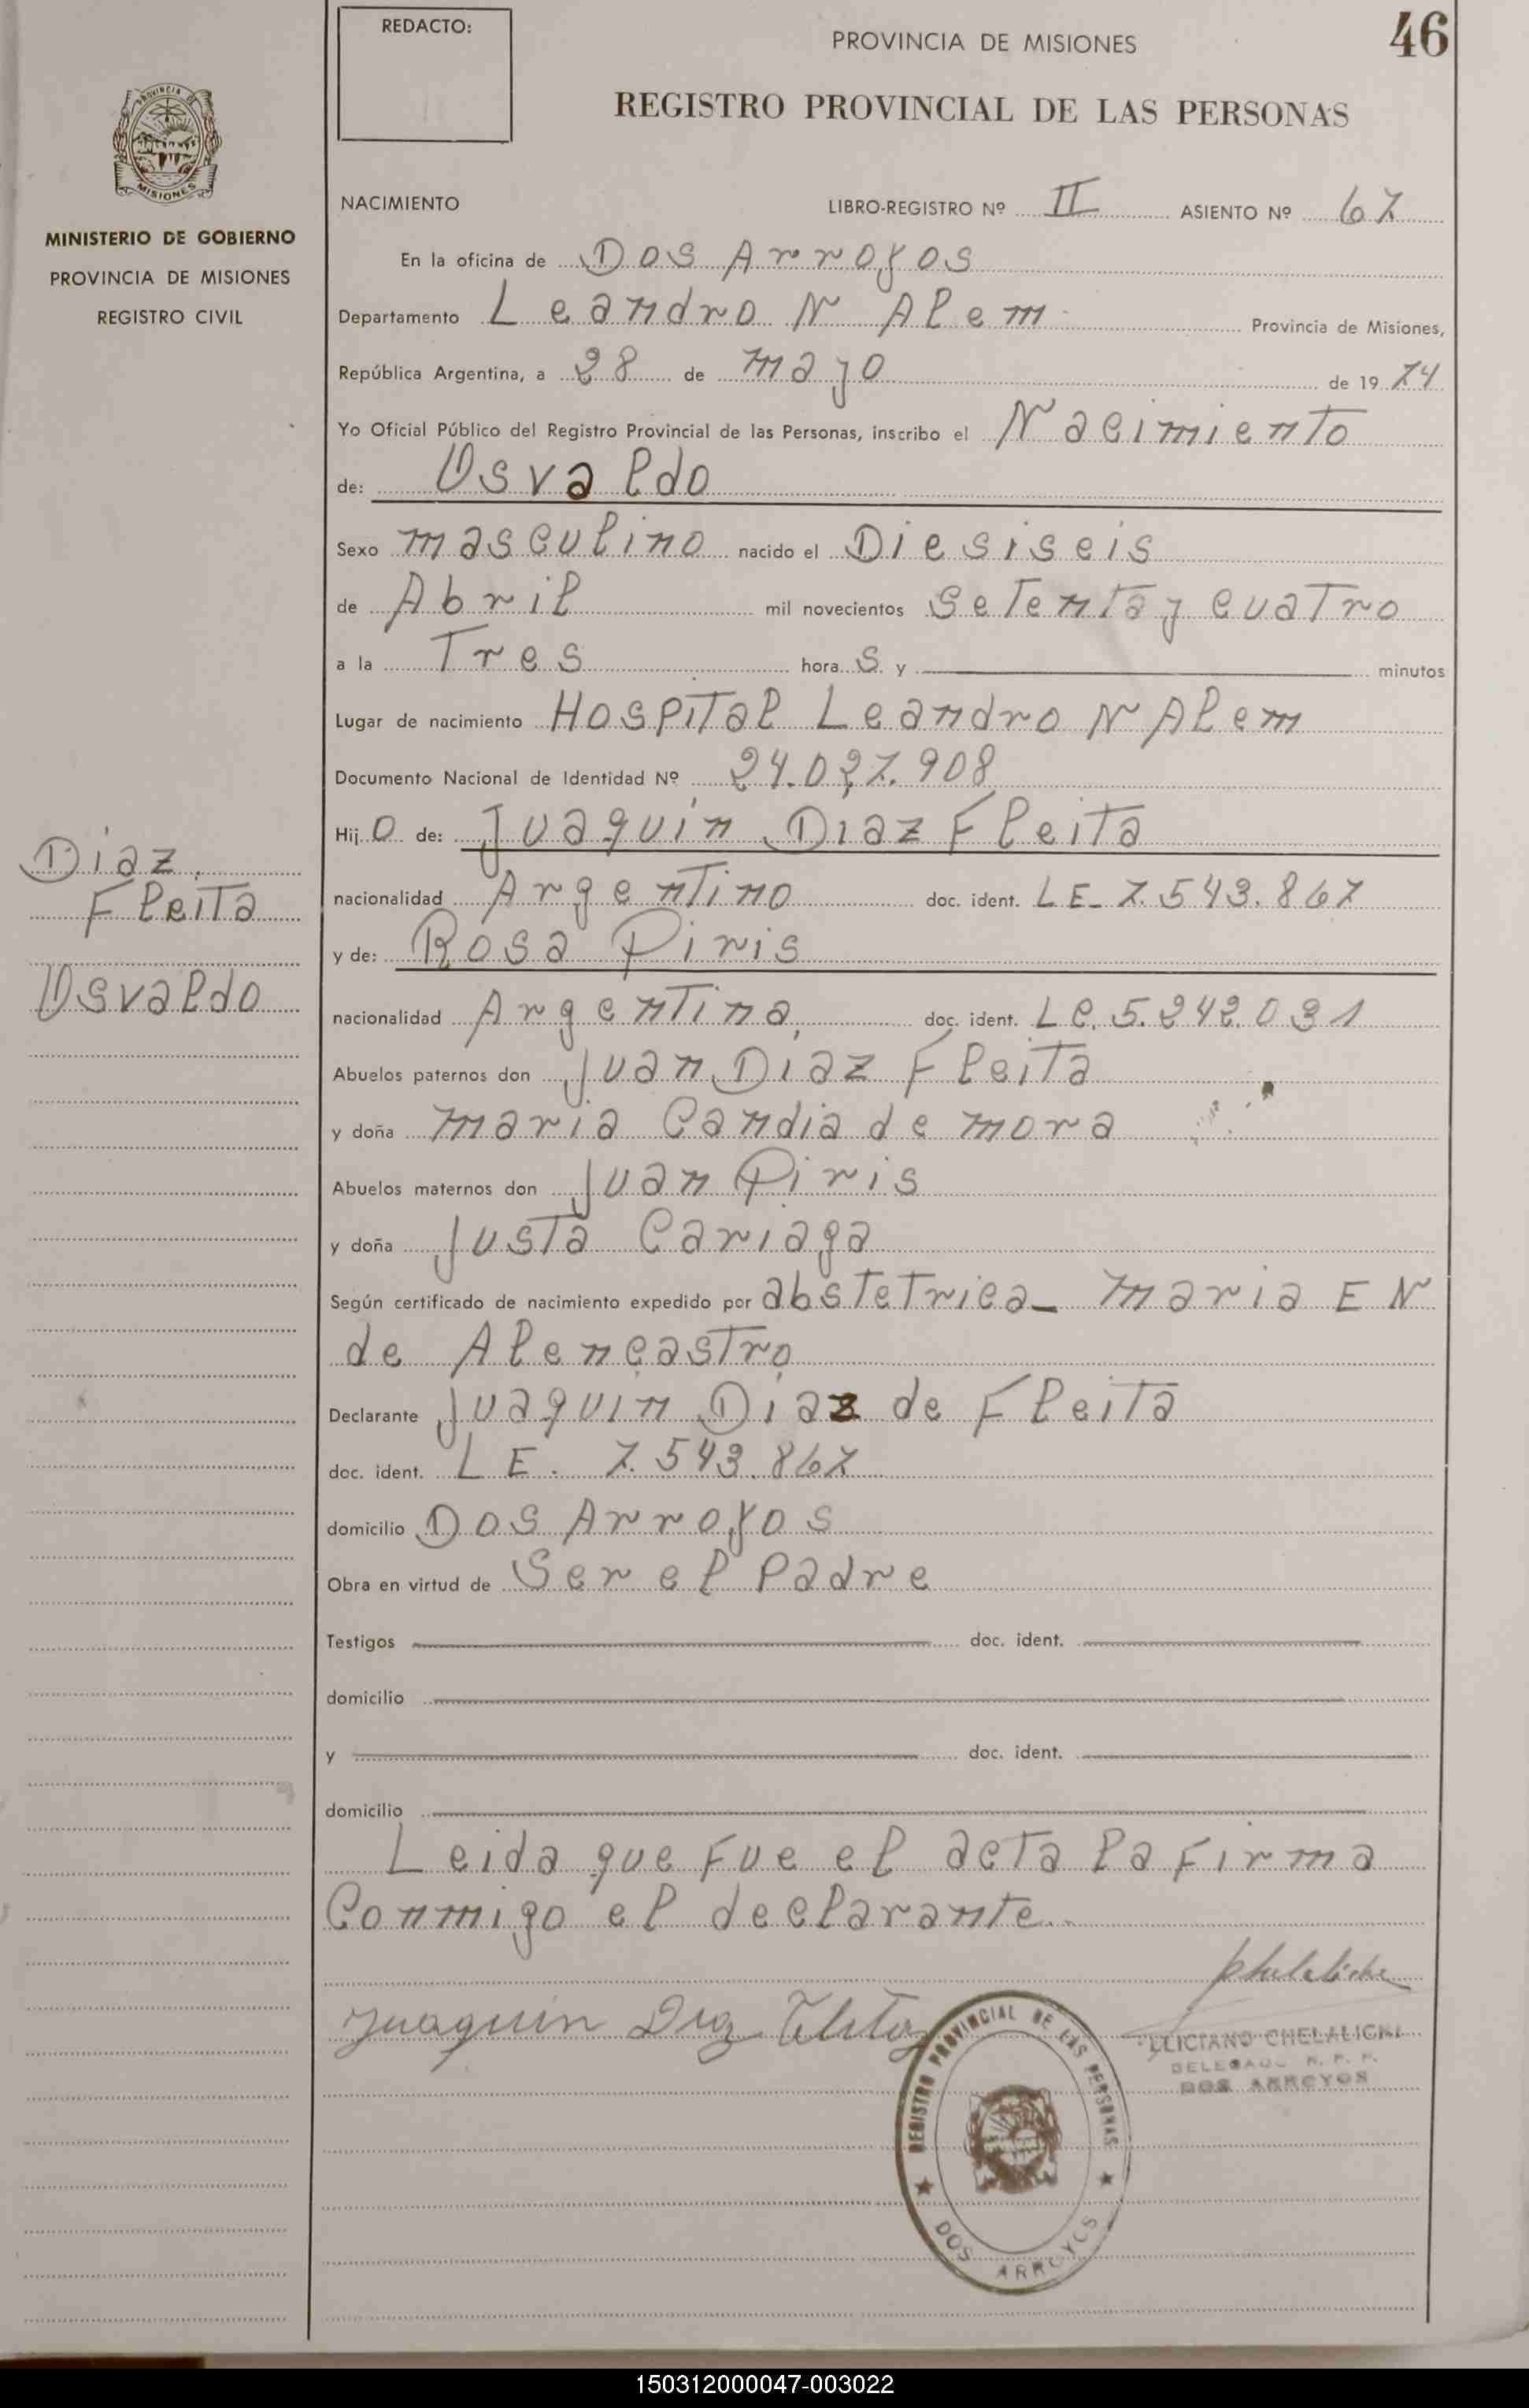 REDACTO:
PROVINCIA DE MISIONES
46
REGISTRO PROVINCIAL DE LAS PERSONAS
PROVINCIA
MISIONES
MINISTERIO DE GOBIERNO
PROVINCIA DE MISIONES
REGISTRO CIVIL
NACIMIENTO LIBRO-REGISTRO Nº II ASIENTO Nº 67
En la oficina de Dos Arroyos
Departamento Leandro N Alem Provincia de Misiones,
República Argentina, a 28 de mayo de 1974
Yo Oficial Público del Registro Provincial de las Personas, inscribo el Nacimiento
de: Osvaldo
Sexo masculino nacido el Diesiseis
de Abril mil novecientos Setenta y cuatro
a la Tres hora s y minutos
Lugar de nacimiento Hospital Leandro N Alem
Documento Nacional de Identidad Nº 24.027.908
Hijo de: Juaquin Diaz Fleita
nacionalidad Argentino doc. ident. LE- 7.543.867
y de: Rosa Piris
nacionalidad Argentina, doc. ident. LC. 5.242.031
Abuelos paternos don Juan Diaz Fleita
y doña maria Candia de mora
Abuelos maternos don Juan Piris
y doña Justa Cariaga
Según certificado de nacimiento expedido por abstetrica- maria E N
de Alencastro
Declarante Juaquin Diaz de Fleita
doc. ident. LE. 7.543.867
domicilio Dos Arroyos
Obra en virtud de Ser el Padre
Testigos doc. ident.
domicilio
y doc. ident.
domicilio
Leida que fue el acta la firma
Conmigo el declarante.
Diaz
Fleita
Osvaldo
Juaquin Diaz Fleita
REGISTRO PROVINCIAL DE LAS PERSONAS
DOS ARROYOS
CHELALICHE
DELEGADO R. P. P.
DOS ARROYOS
150312000047-003022